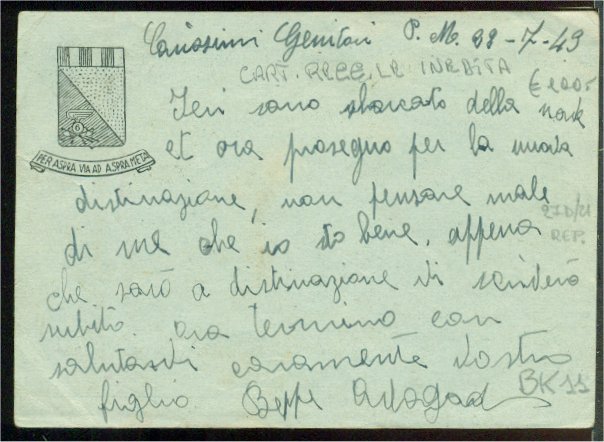 Carissimi Genitori P. M. 22-7-43
CART. REGG. LE INEDITA
€ 100-
Ieri sono sbarcato della nave
et ora proseguo per la nuova
PER ASPRA VIA AD ASPRA META
distinazione, non pensare male
27D/21
di me che io sto bene. appena
REP.
che sarò a distinazione vi scriverò
subito. ora termino con
salutandi caramente Vostro
figlio Beppe
BK 11